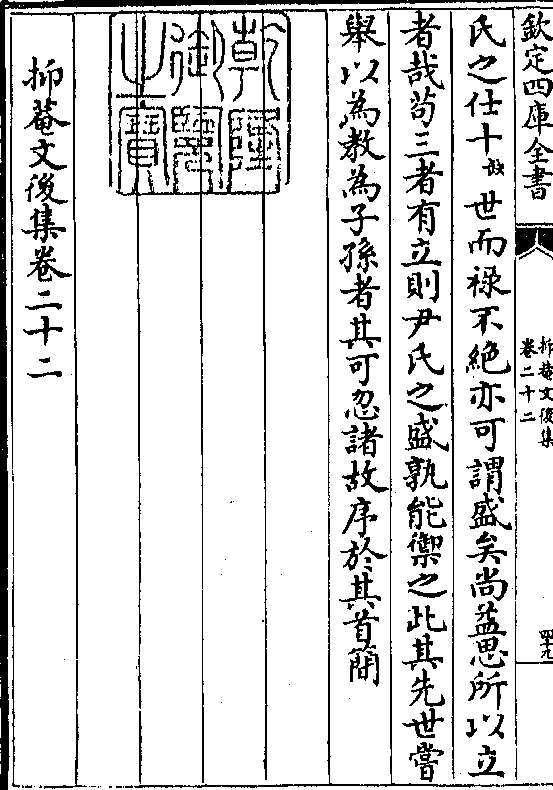 欽定四庫全書
抑菴文後集
卷二十二
四十九
氏之仕十闕世而禄不絕亦可謂盛矣尚益思所以立
者哉苟三者有立則尹氏之盛孰能禦之此其先世嘗
舉以為教為子孫者其可忽諸故序於其首簡
乾隆
御覽
之寶
抑菴文後集卷二十二